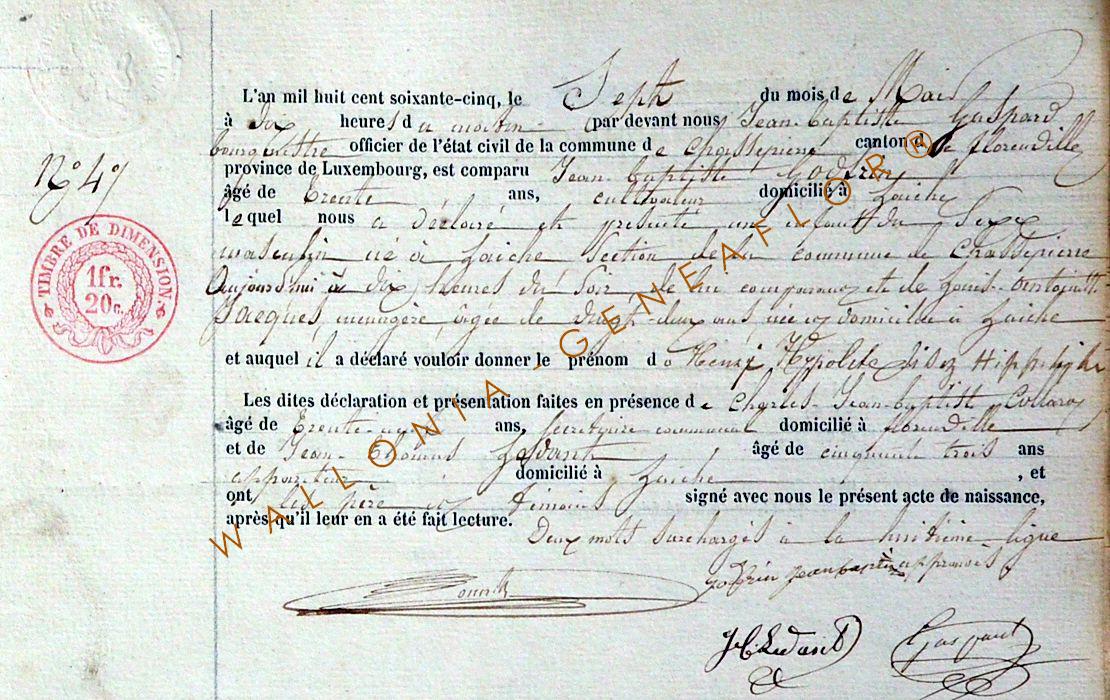 N° 47
TIMBRE DE DIMENSION
1 fr.
20 c.
L'an mil huit cent soixante-cinq, le Sept du mois de Mai
à dix heures du matin par devant nous Jean-baptiste Gaspard
bourgmestre officier de l'état civil de la commune de Chassepierre canton de florenville
province de Luxembourg, est comparu Jean-baptiste Godfrin
âgé de trente ans, cultivateur domicilié à Laiche
lequel nous a déclaré et présenté un enfant du Sexe
masculin né à Laiche Section de la commune de Chassepierre
Aujourd'hui à dix heures du Soir de lui comparant et de
Jacques, ménagère, âgée de vingt-deux ans née et domiciliée à Laiche
et auquel il a déclaré vouloir donner le prénom de Henri Hypolite
Les dites déclaration et présentation faites en présence de Charles-Jean-baptiste
âgé de trente ans, Secrétaire communal domicilié à florenville
et de Jean-thomas Ledant âgé de cinquante trois ans
domicilié à Laiche, et
ont les père et témoins signé avec nous le présent acte de naissance,
après qu'il leur en a été fait lecture.
Deux mots surchargés à la huitième ligne
godfrin jean baptis approuvés
JT Ledant
Gaspard
WALLONIA-GENEAFLOR®